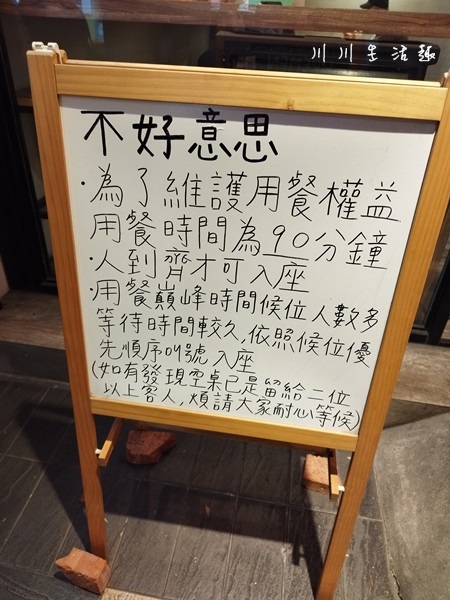 川川生活趣
不好意思
·為了維護用餐權益
用餐時間為90分鐘
·人到齊才可入座
·用餐巔峰時間候位人數多
等待時間較久,依照候位優
先順序叫號入座
(如有發現空桌已是留給二位
以上客人,煩請大家耐心等候)